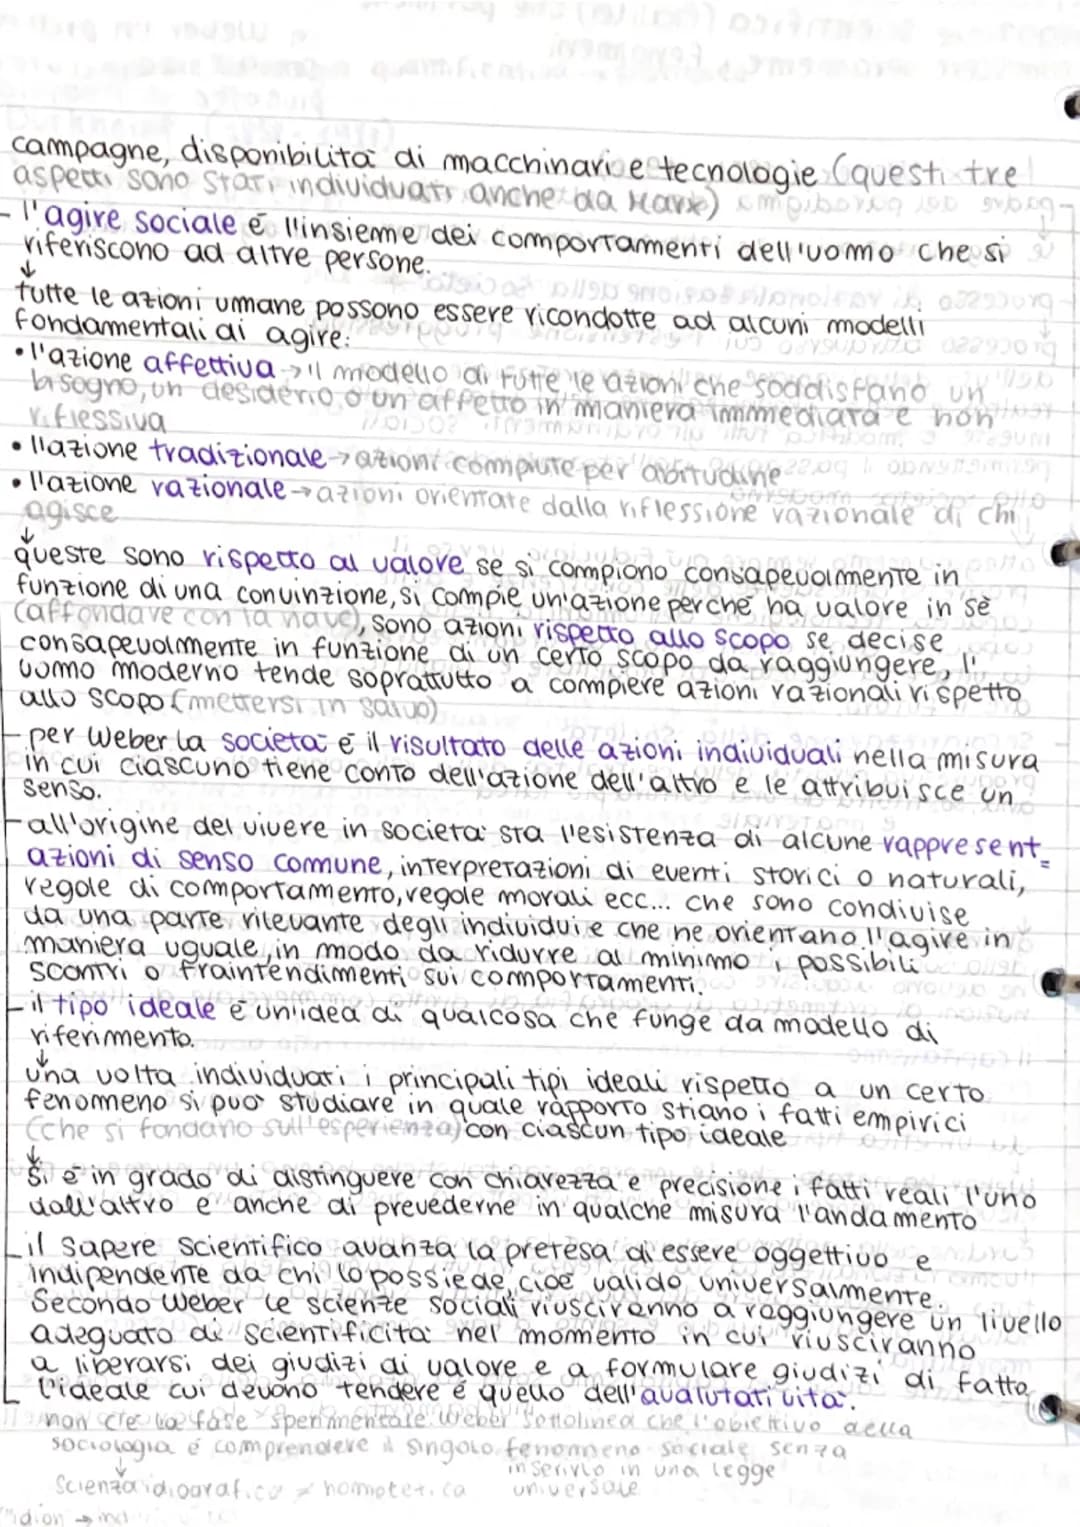 campagne, disponibilità di macchinari e tecnologie (questi tre
aspetti sono stati individuati anche da Marx)
- l'agire sociale è l'insieme dei comportamenti dell'uomo che si
riferiscono ad altre persone.
↓
tutte le azioni umane possono essere ricondotte ad alcuni modelli
fondamentali di agire:
• l'azione affettiva → il modello di tutte le azioni che soddisfano un
bisogno, un desiderio o un affetto in maniera immediata e non
riflessiva
• l'azione tradizionale → azioni compiute per abitudine
• l'azione razionale → azioni orientate dalla riflessione razionale di chi
agisce
↓
queste sono rispetto al valore se si compiono consapevolmente in
funzione di una convinzione, si compie un'azione perché ha valore in sé
(affondare con la nave), sono azioni rispetto allo scopo se decise
consapevolmente in funzione di un certo scopo da raggiungere, l'
uomo moderno tende soprattutto a compiere azioni razionali rispetto
allo scopo (mettersi in salvo)
- per Weber la società è il risultato delle azioni individuali nella misura
in cui ciascuno tiene conto dell'azione dell'altro e le attribuisce un
senso.
- all'origine del vivere in società sta l'esistenza di alcune rappresent=
azioni di senso comune, interpretazioni di eventi storici o naturali,
regole di comportamento, regole morali ecc... che sono condivise
da una parte rilevante degli individui e che ne orientano l'agire in
maniera uguale, in modo da ridurre al minimo i possibili
scontri o fraintendimenti sui comportamenti.
- il tipo ideale è un'idea di qualcosa che funge da modello di
riferimento.
↓
una volta individuati i principali tipi ideali rispetto a un certo
fenomeno si può studiare in quale rapporto stiano i fatti empirici
(che si fondano sull'esperienza) con ciascun tipo ideale
↓
si è in grado di distinguere con chiarezza e precisione i fatti reali l'uno
dall'altro e anche di prevederne in qualche misura l'andamento
- il sapere scientifico avanza la pretesa di essere oggettivo e
indipendente da chi lo possiede, cioè valido universalmente.
Secondo Weber le scienze sociali riusciranno a raggiungere un livello
adeguato di scientificità nel momento in cui riusciranno
a liberarsi dei giudizi di valore e a formulare giudizi di fatto,
l'ideale cui devono tendere è quello dell'avalutatività.
non c'è la fase sperimentale Weber sottolinea che l'obiettivo della
sociologia è comprendere il singolo fenomeno sociale senza
inserirlo in una legge
universale
↓
Scienza idiografica ≠ nomotetica